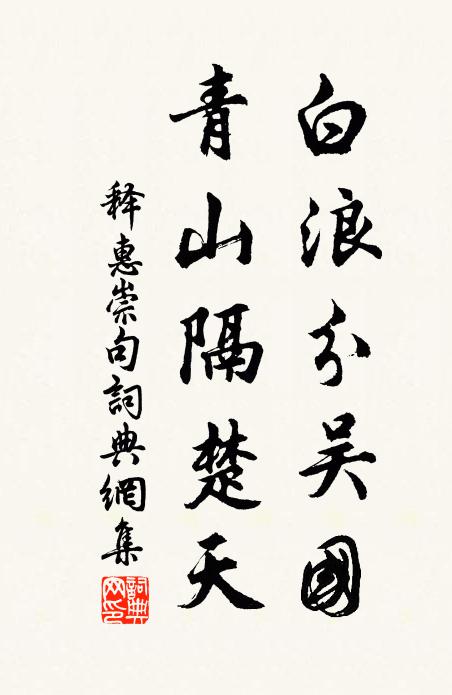 白浪分吴國
青山隔楚天
释惠崇句詞典網集
詞典網印